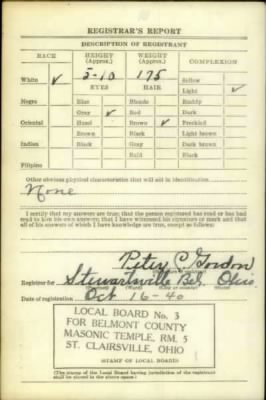 REGISTRAR'S REPORT
DESCRIPTION OF REGISTRANT
RACE HEIGHT (Approx.) WEIGHT (Approx.) COMPLEXION
White ✓ 5-10 175 Sallow
EYES HAIR Light ✓
Negro Blue Blonde Ruddy
Gray ✓ Red Dark
Oriental Hazel Brown ✓ Freckled
Brown Black Light brown
Indian Black Gray Dark brown
Bald Black
Filipino
Other obvious physical characteristics that will aid in identification
None
I certify that my answers are true; that the person registered has read or has had
read to him his own answers; that I have witnessed his signature or mark and that
all of his answers of which I have knowledge are true, except as follows:
Peter C. Gordon
Registrar for Stewartsville Bel. Ohio
Date of registration Oct 16-40
LOCAL BOARD No. 3
FOR BELMONT COUNTY
MASONIC TEMPLE, RM. 5
ST. CLAIRSVILLE, OHIO
STAMP OF LOCAL BOARD
(The stamp of the Local Board having jurisdiction of the registrant
shall be placed in the above space.)